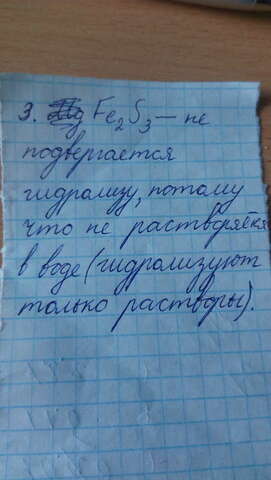 3. Fe2S3 — не
подвергается
гидролизу, потому
что не растворяется
в воде (гидролизуют
только растворы).